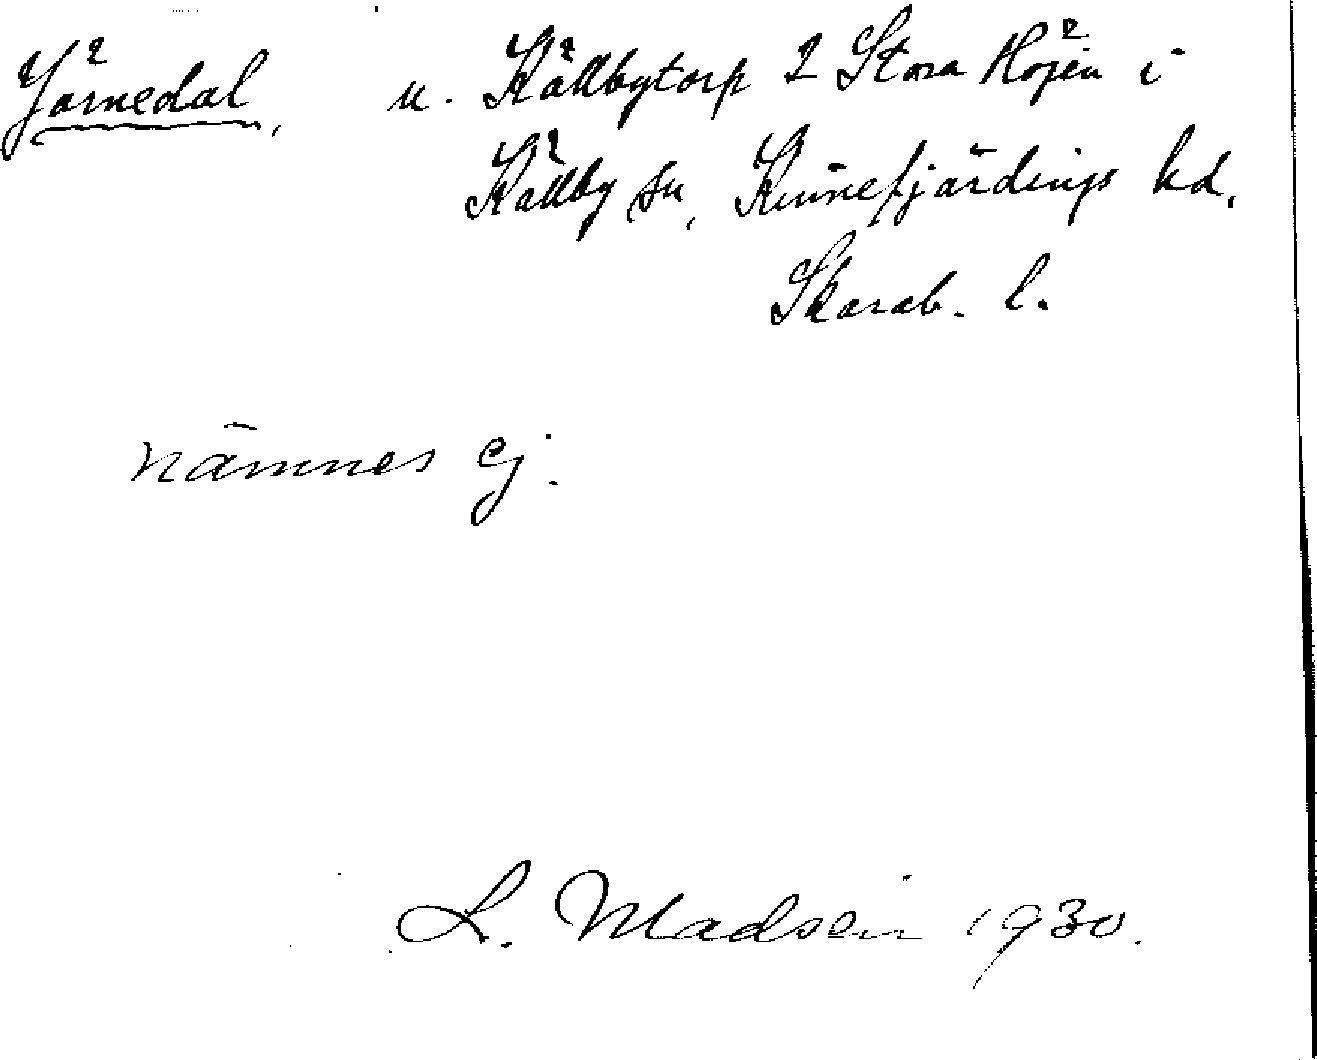 Järnedal, u. Källbytorp 2 Stora Höjen i
Källby sn, Kinnefjärdings hd,
Skarab. l.
nämnes ej.
L. Madsen 1930.